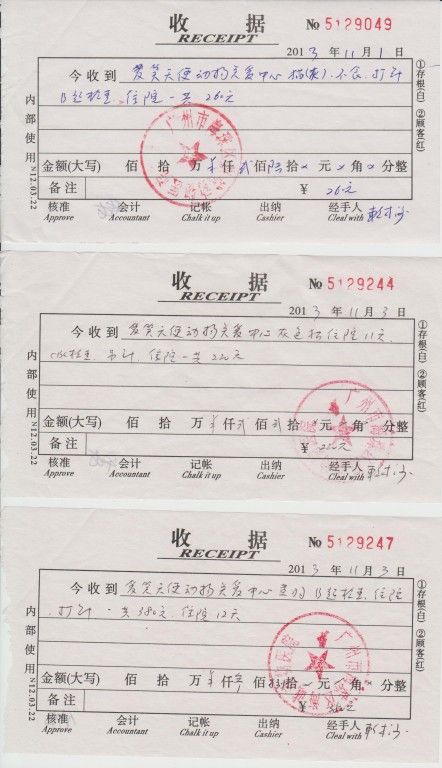 收 据
RECEIPT
№ 5129049
2013 年 11 月 1 日
今收到 爱笑天使动物关爱中心 猫 不食、打针
B超检查、住院一共260元
金额(大写) 佰 拾 万 仟 贰 佰 陆 拾 元 角 分整
备 注 ¥ 260元
核准 会计 记帐 出纳 经手人
Approve Accountant Chalk it up Cashier Cleal with
内部使用 N12.03.22
①存根(白) ②顾客(红)
广州市
收 据
RECEIPT
№ 5129244
2013 年 11 月 3 日
今收到 爱笑天使动物关爱中心 灰色猫住院11天、
检查、吊针、住院一共220元
金额(大写) 佰 拾 万 仟 贰 佰 贰 拾 元 角 分整
备 注 ¥ 220元
核准 会计 记帐 出纳 经手人
Approve Accountant Chalk it up Cashier Cleal with
内部使用 N12.03.22
①存根(白) ②顾客(红)
广州市
收 据
RECEIPT
№ 5129247
2013 年 11 月 3 日
今收到 爱笑天使动物关爱中心 B超检查、住院
、打针、一共380元、住院12天
金额(大写) 佰 拾 万 仟 佰 拾 元 角 分整
备 注 ¥
核准 会计 记帐 出纳 经手人
Approve Accountant Chalk it up Cashier Cleal with
内部使用 N12.03.22
①存根(白) ②顾客(红)
广州市